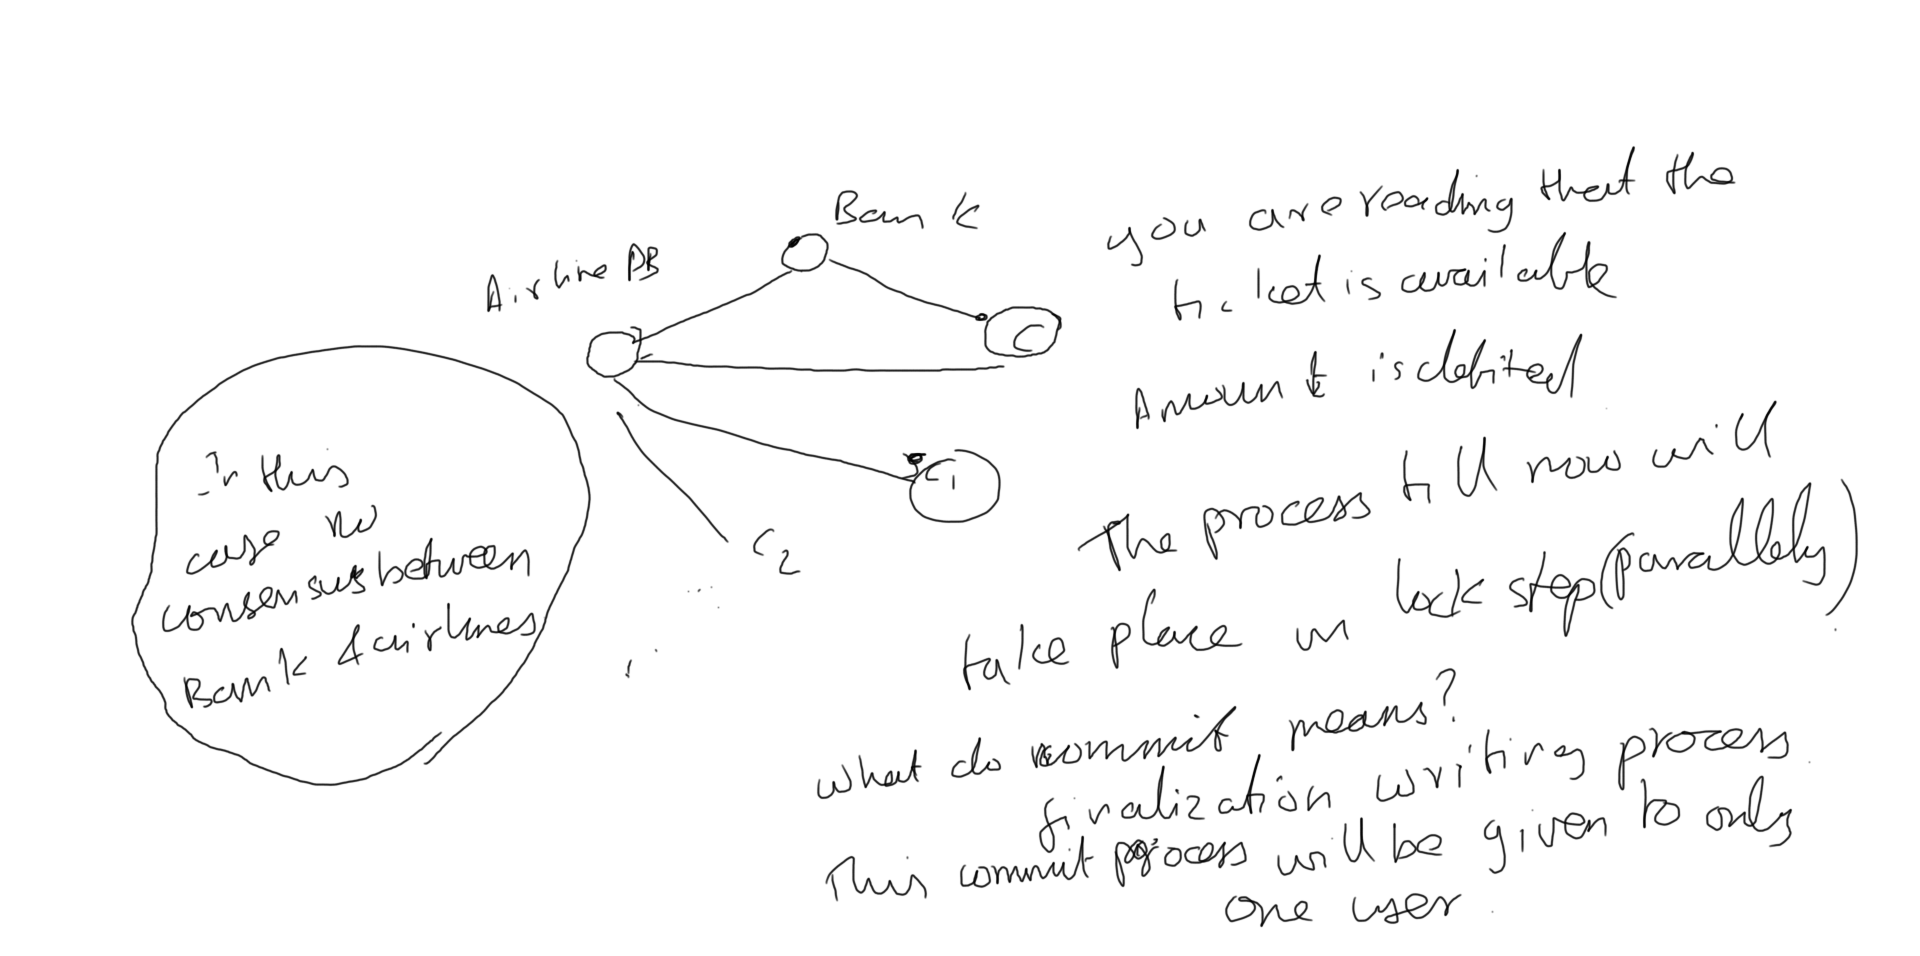 Bank
Airline DB
C
C1
C2
In this
case no
consensus between
Bank & airlines
you are reading that the
ticket is available
Amount is debited
The process till now will
take place in lock step (parallely)
What do commit means?
finalization writing process
This commit process will be given to only
one user